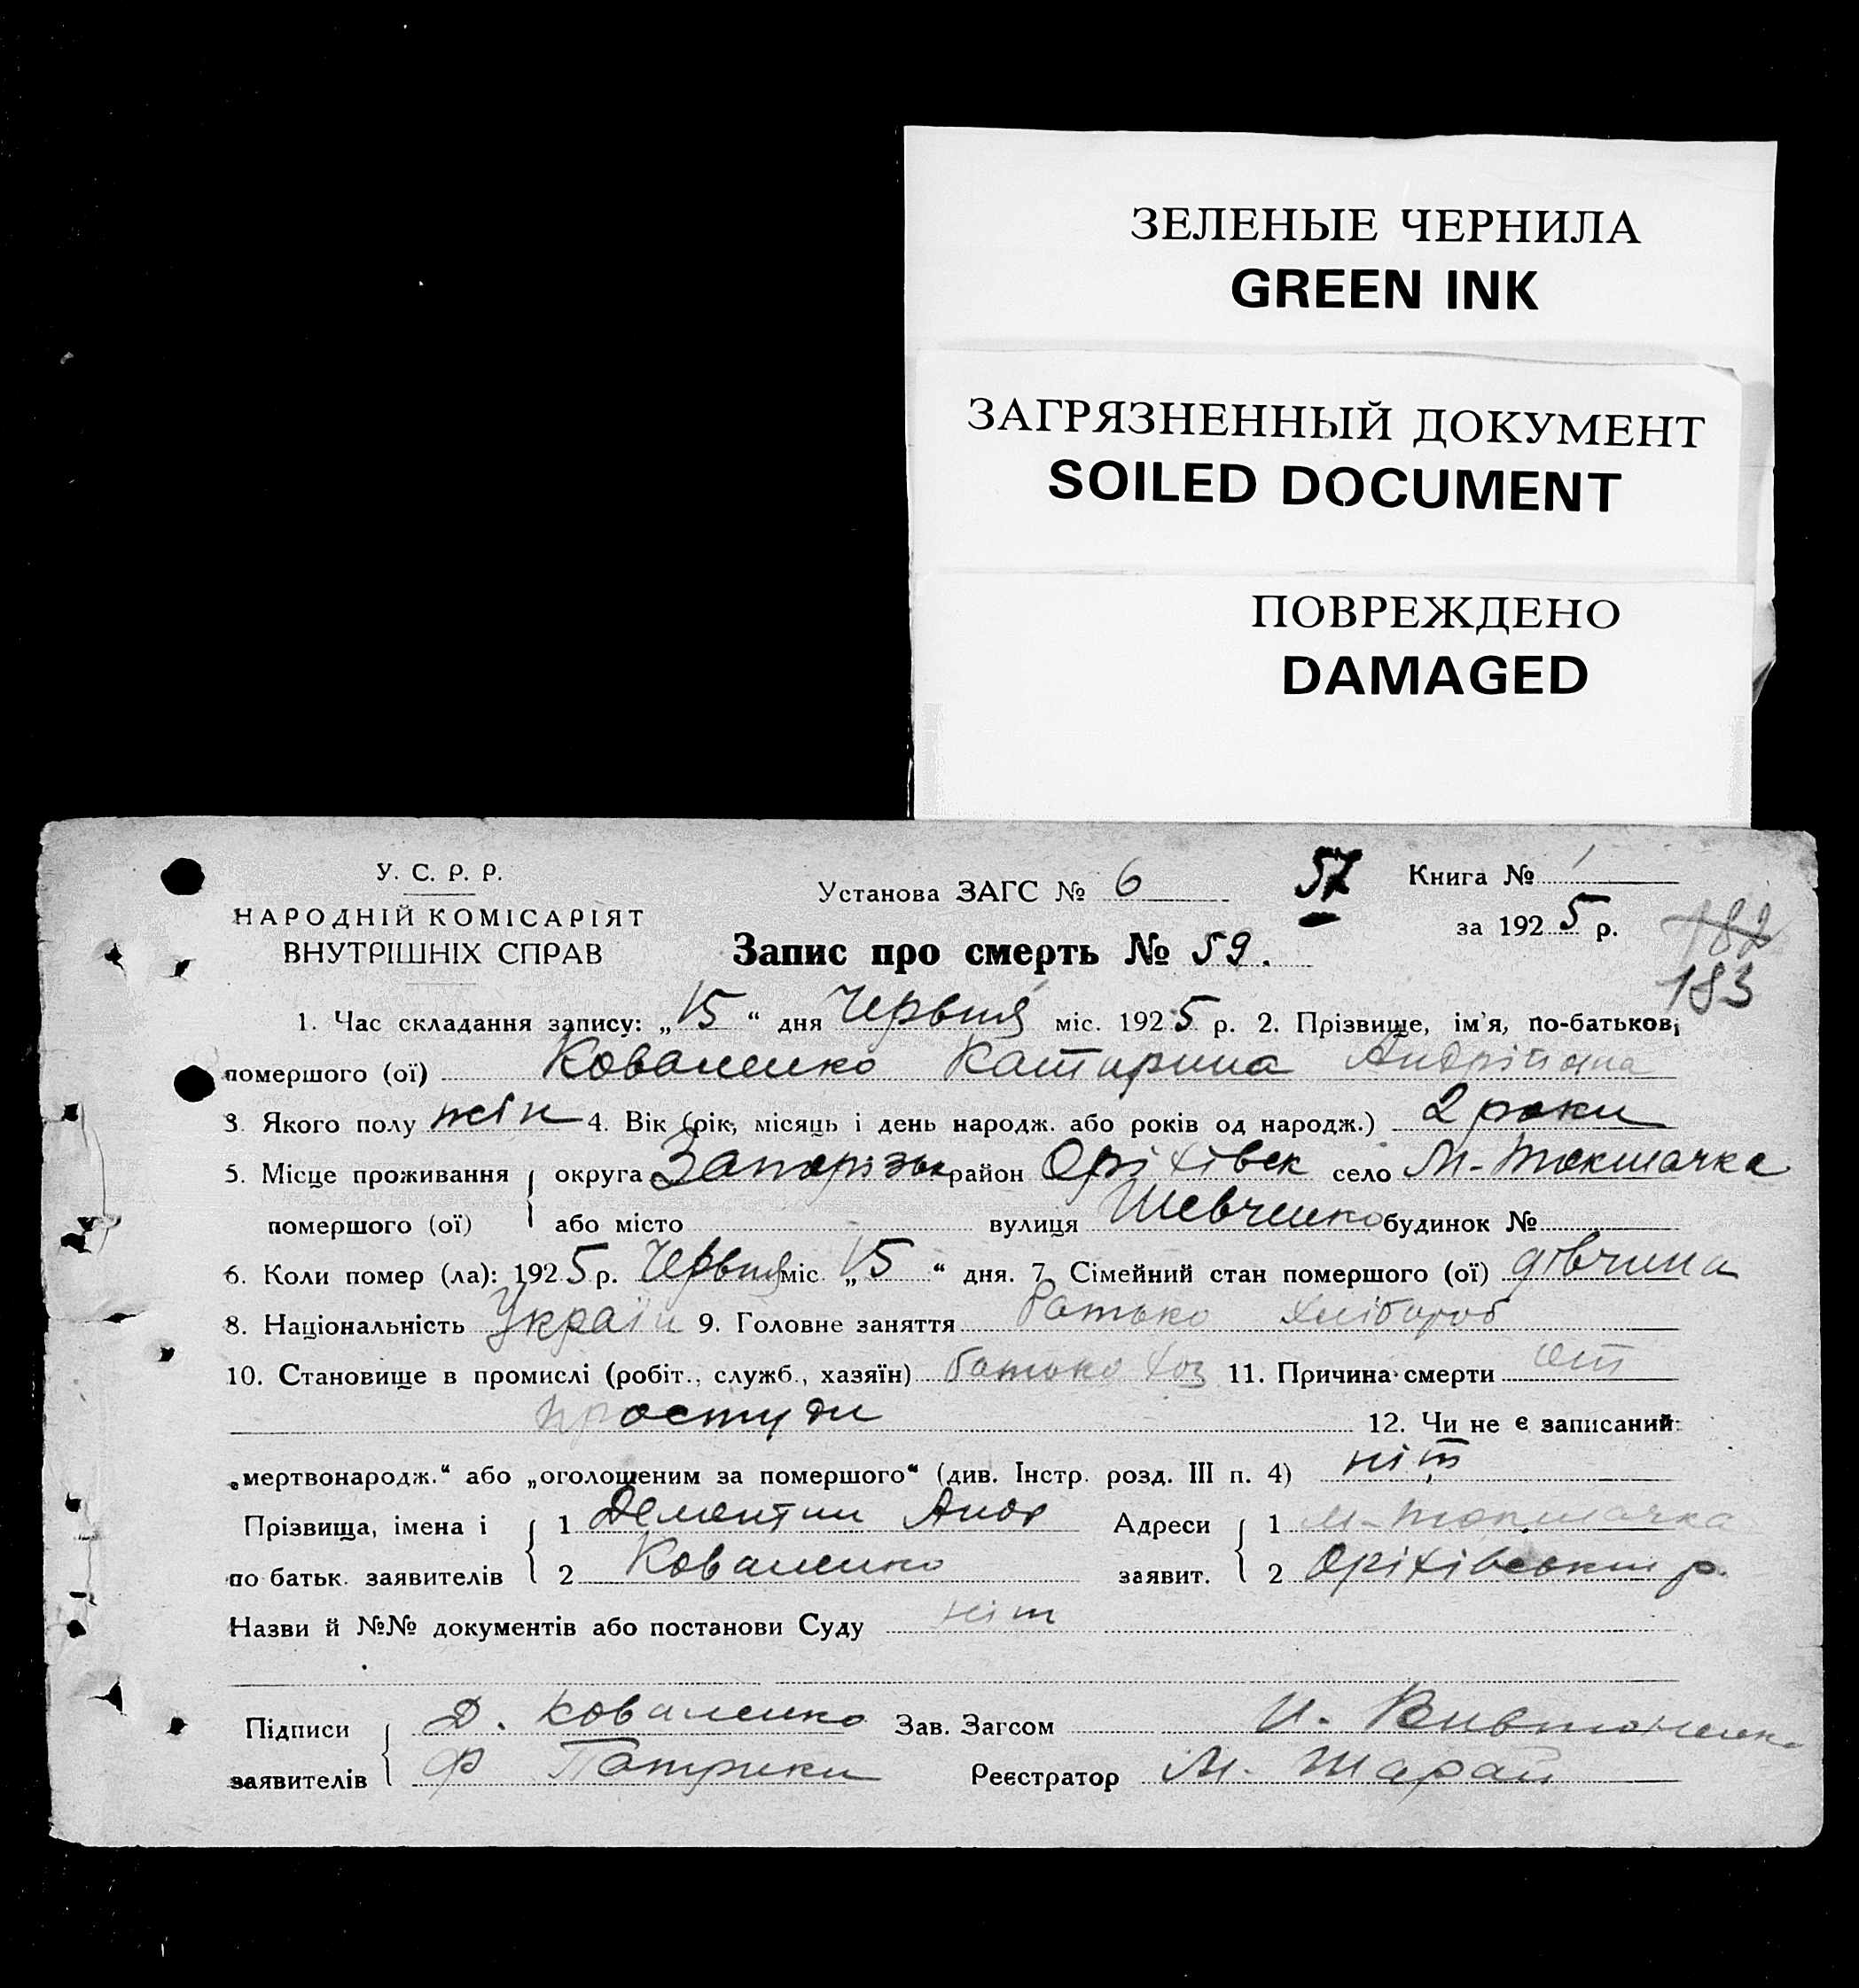 ЗЕЛЕНЫЕ ЧЕРНИЛА
GREEN INK
ЗАГРЯЗНЕННЫЙ ДОКУМЕНТ
SOILED DOCUMENT
ПОВРЕЖДЕНО
DAMAGED
У. С. Р. Р.
НАРОДНІЙ КОМІСАРІЯТ
ВНУТРІШНІХ СПРАВ
Установа ЗАГС № 6
57
Книга № 1
за 1925 р.
182
183
Запис про смерть № 59.
1. Час складання запису: „15“ дня Червня міс. 1925 р. 2. Прізвище, ім'я, по-батькові
помершого (ої) Коваленко Катирина Андріївна
3. Якого полу жін 4. Вік (рік, місяць і день народж. або років од народж.) 2 роки
5. Місце проживання округа Запорізьк район Оріхівск село М-Токмачка
помершого (ої) або місто - вулиця Шевченко будинок №
6. Коли помер (ла): 1925 р. Червня міс. „15“ дня. 7. Сімейний стан помершого (ої) дівчина
8. Національність Україн 9. Головне заняття Батько хлібороб
10. Становище в промислі (робіт., служб., хазяїн) батько хоз 11. Причина смерти от
простуди 12. Чи не є записаний
„мертвонародж.“ або „оголошеним за помершого“ (див. Інстр. розд. III п. 4) ніт
Прізвища, імена і 1 Дементий Анд Адреси 1 М-Токмачка
по батьк. заявителів 2 Коваленко заявит. 2 Оріхівский р.
Назви й №№ документів або постанови Суду ніт
Підписи Д. Коваленко Зав. Загсом И.
заявителів Ф Реєстратор М.